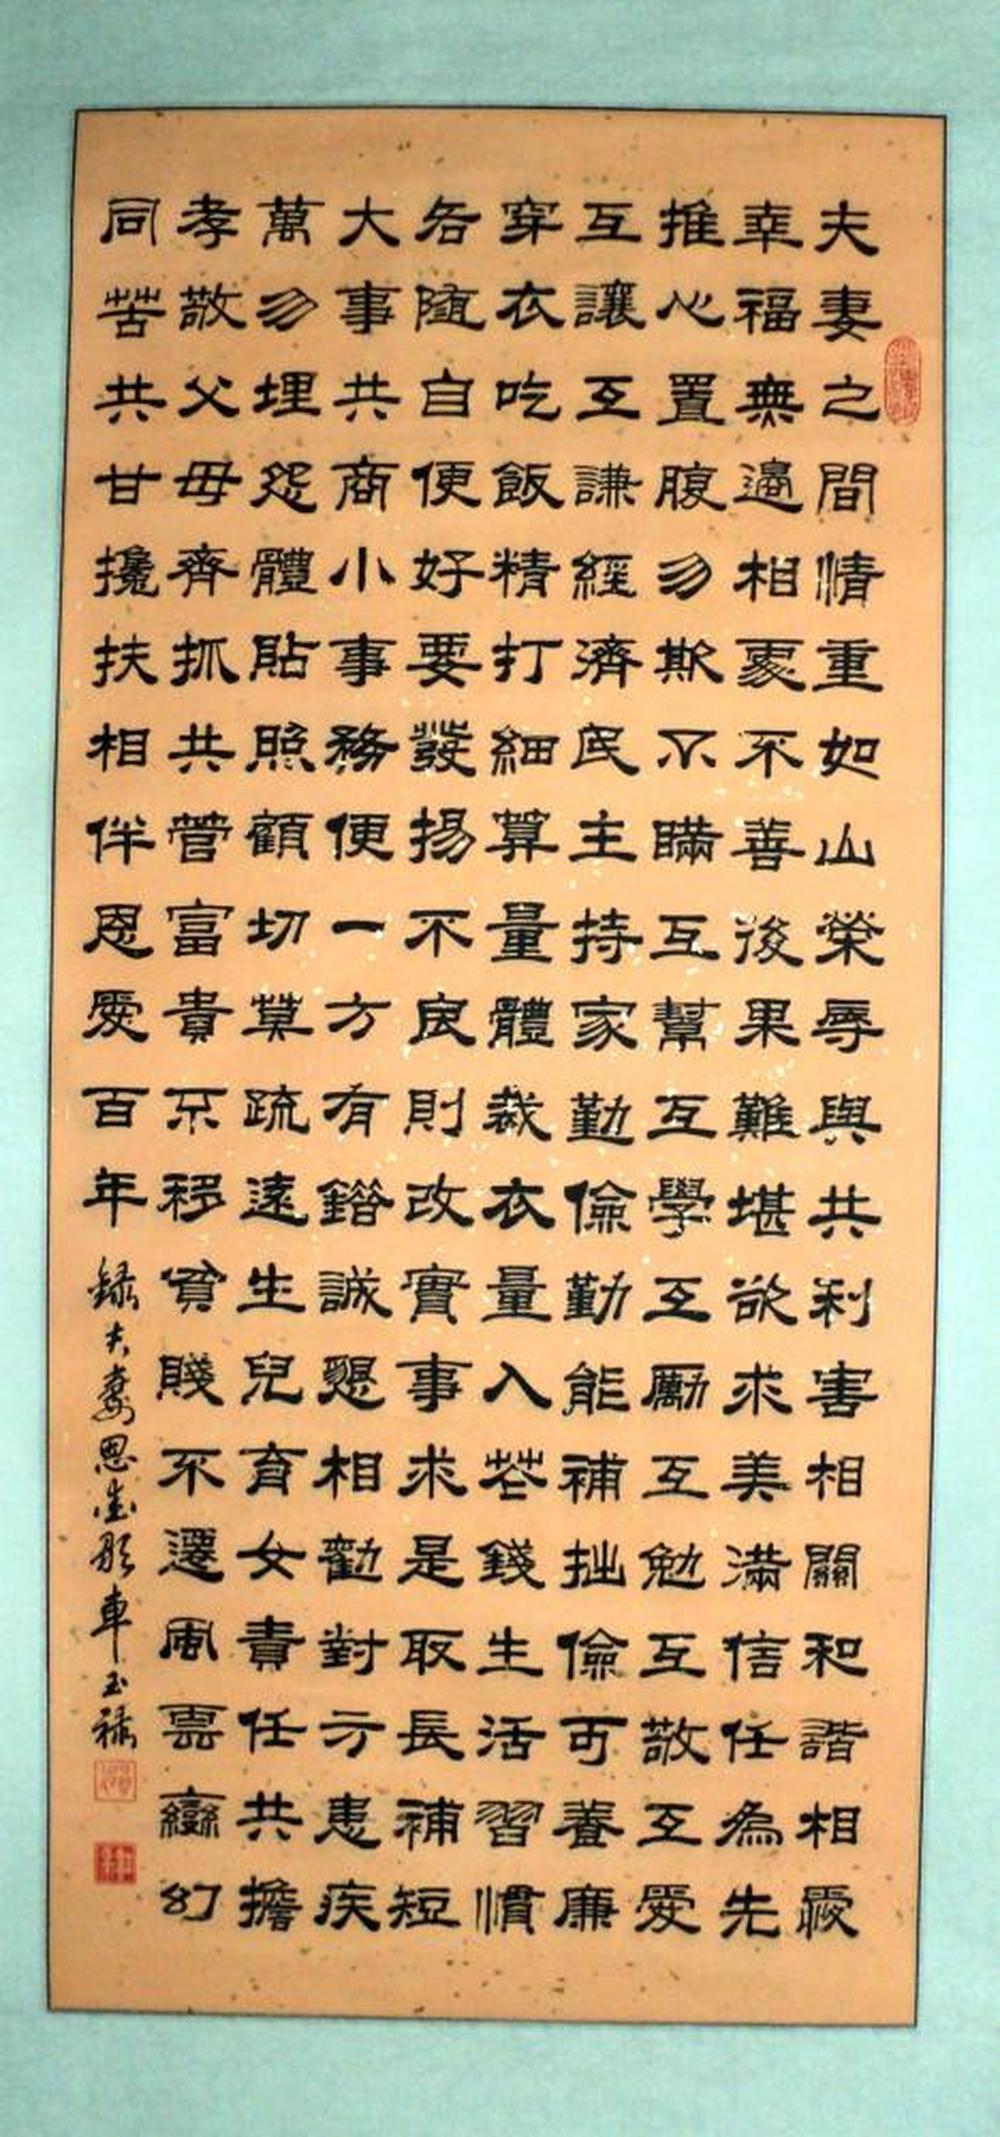 夫妻之間情重如山榮辱與共利害相關和諧相愛
幸福無邊相處不善後果難堪欲求美滿信任為先
推心置腹勿欺不瞞互幫互學互勵互勉互敬互愛
互讓互謙經濟民主持家勤儉勤能補拙儉可養廉
穿衣吃飯精打細算量體裁衣量入花錢生活習慣
各隨自便好要發揚不良則改實事求是取長補短
大事共商小事務便一方有錯誠懇相勸對方患疾
萬勿埋怨體貼照顧切莫疏遠生兒育女責任共擔
孝敬父母齊抓共管富貴不移貧賤不遷風雲變幻
同苦共甘攙扶相伴恩愛百年 録夫妻恩愛歌車玉禄